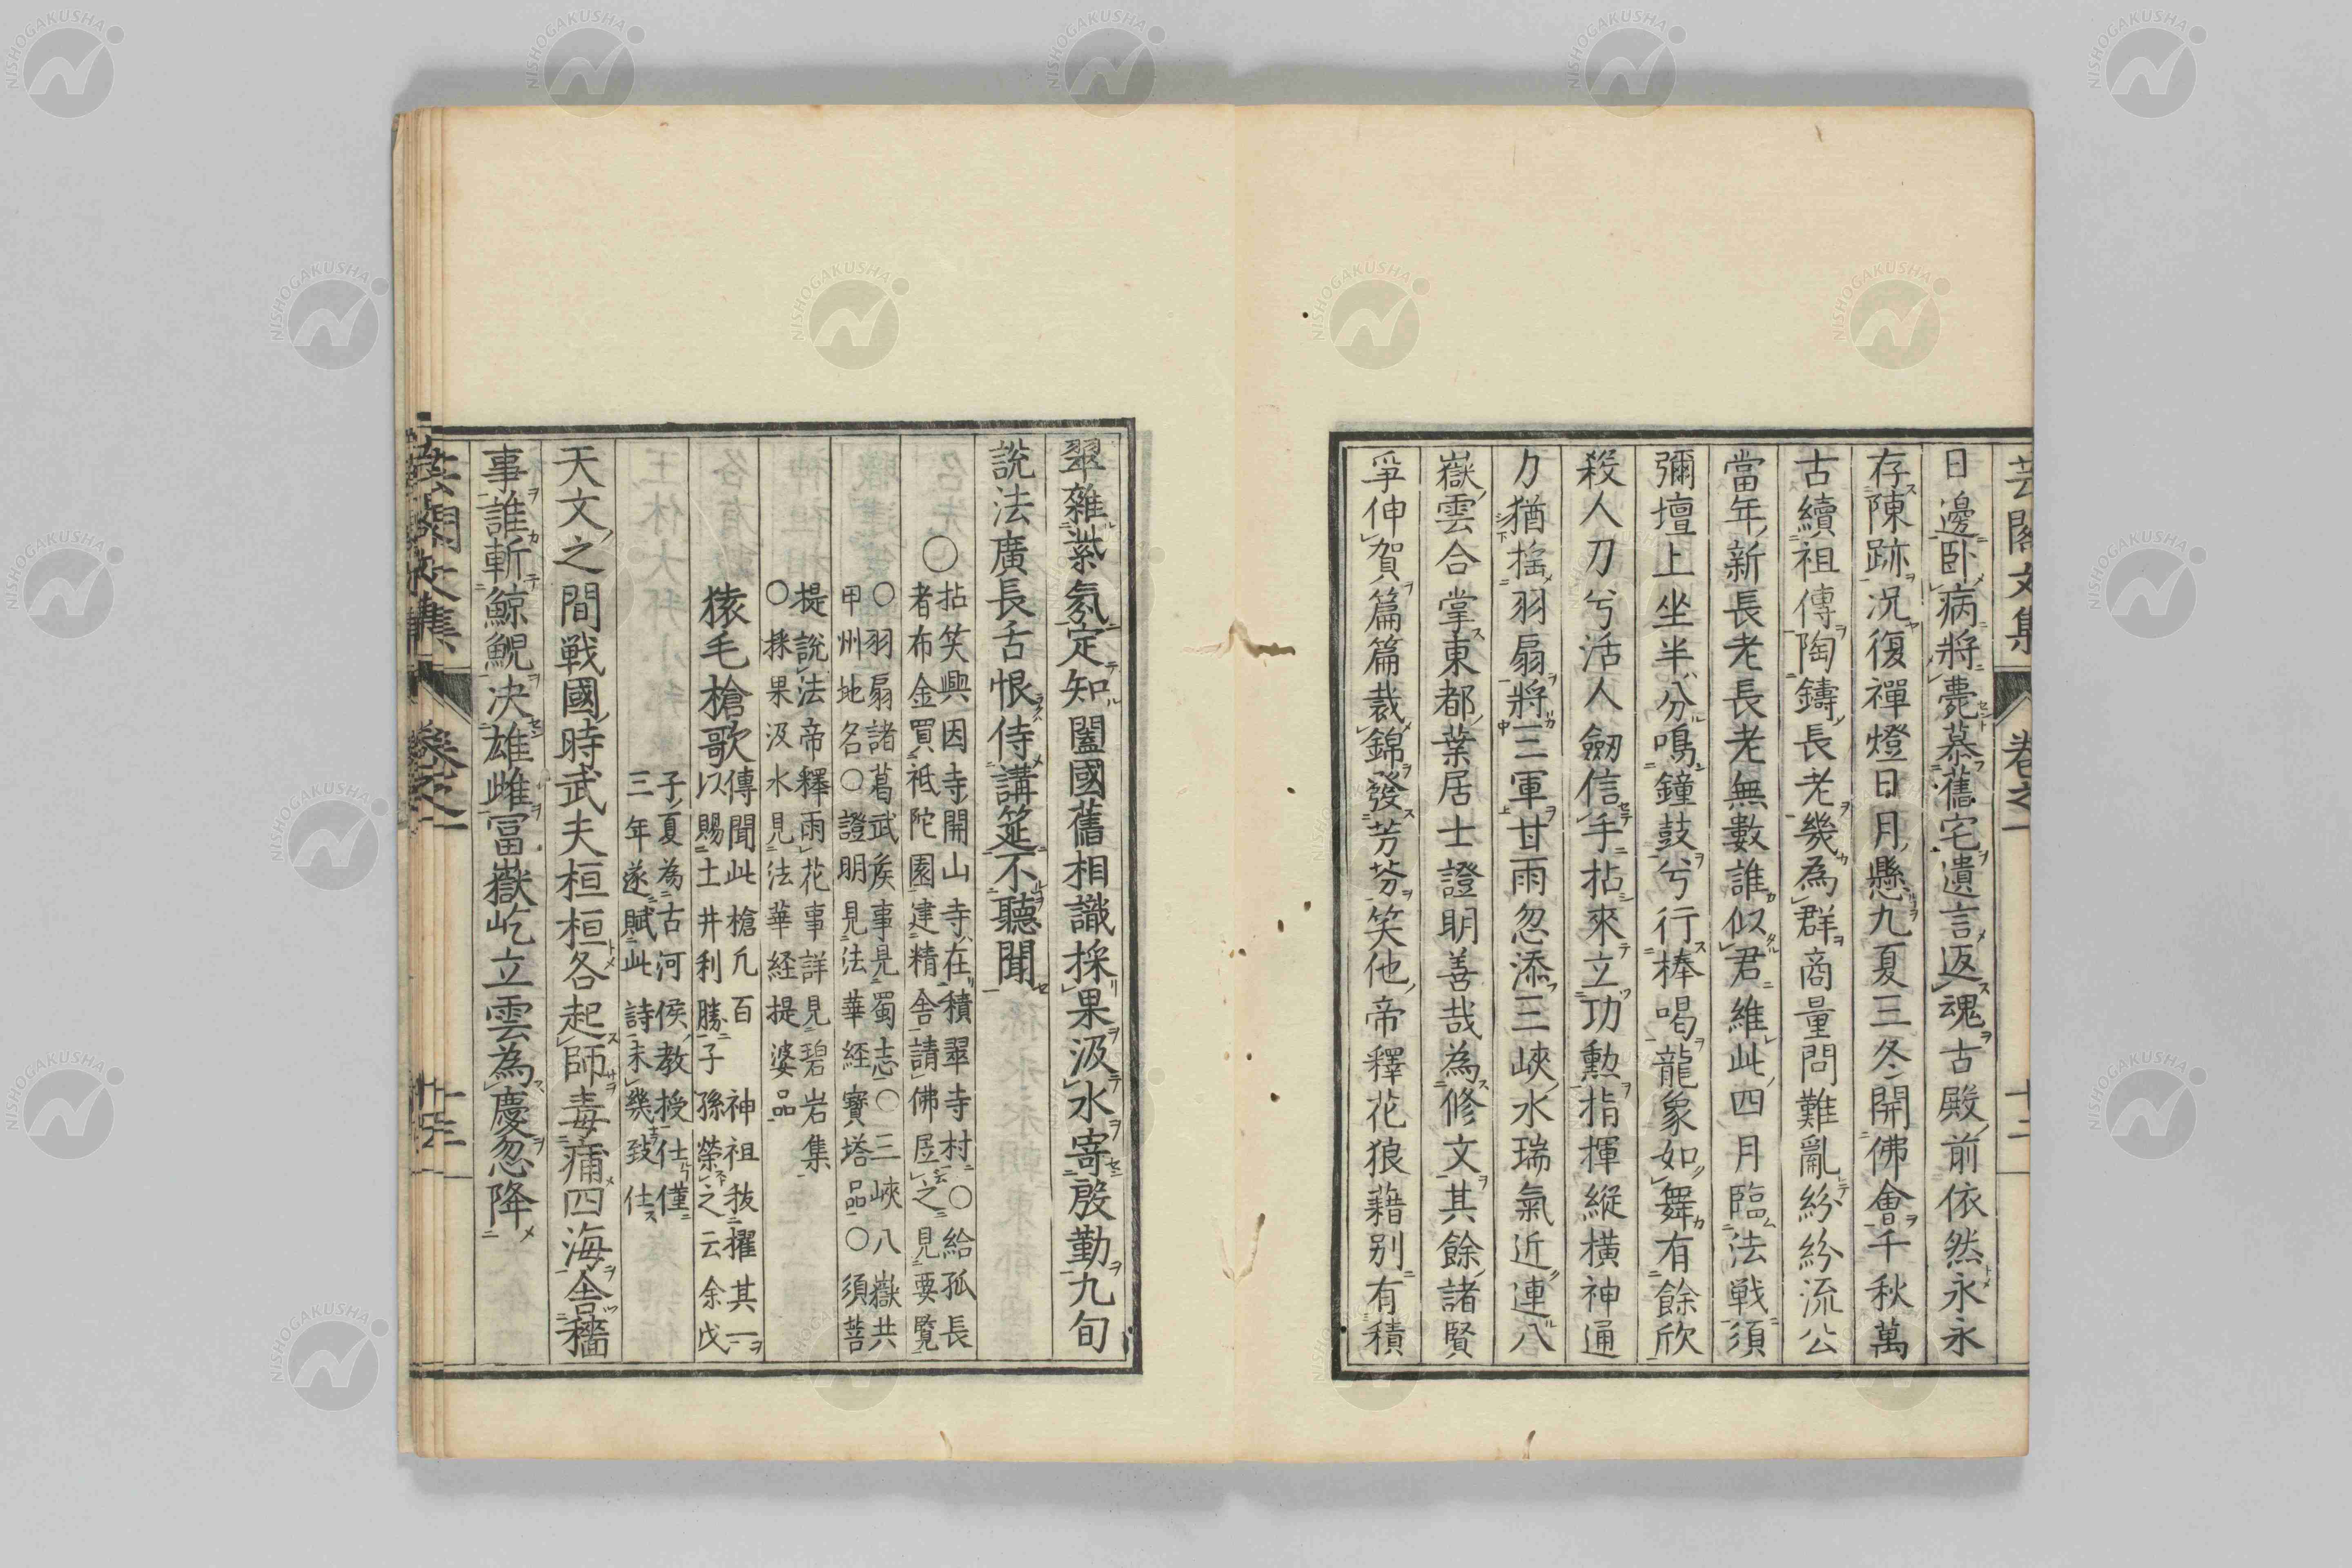 芸閣文集 卷之一 十二
日邊卧病將薨慕舊宅遺言返魂古殿前依然永永
存陳跡況復禪燈日月懸九夏三冬開佛會千秋萬
古續祖傳陶鑄長老幾為群商量問難亂紛紛流公
當年新長老長老無數誰似君維此四月臨法戦須
彌壇上坐半分鳴鐘鼓兮行棒喝龍象如舞有餘欣
殺人刀兮活人劒信手拈來立功勲指揮縱橫神通
力猶搖羽扇將三軍甘雨忽添三峽水瑞氣近連八
嶽雲合掌東都葉居士證明善哉為修文其餘諸賢
爭伸賀篇篇裁錦發芳芬笑他帝釋花狼藉別有積
翠雜紫氛定知闔國舊相識採果汲水寄慇勤九旬
說法廣長舌恨侍講筵不聽聞
〇拈笑興因寺開山寺在積翠寺村〇給孤長
者布金買祇陀園建精舍請佛居之見要覽
〇羽扇諸葛武矦事見蜀志〇三峽八嶽共
甲州地名〇證明見法華経寶塔品〇須菩
提說法帝釋雨花事詳見碧岩集
〇採果汲水見法華経提婆品
猿毛槍歌
傳聞此槍凢百 神祖拔擢其一
以賜土井利勝子孫榮之云余戊
子夏為古河侯教授仕僅
三年遂賦此詩未幾致仕
天文之間戰國時武夫桓桓各起師毒痡四海舍穡
事誰斬鯨鯢决雄雌冨嶽屹立雲為慶忽降
芸閣文集 卷之一